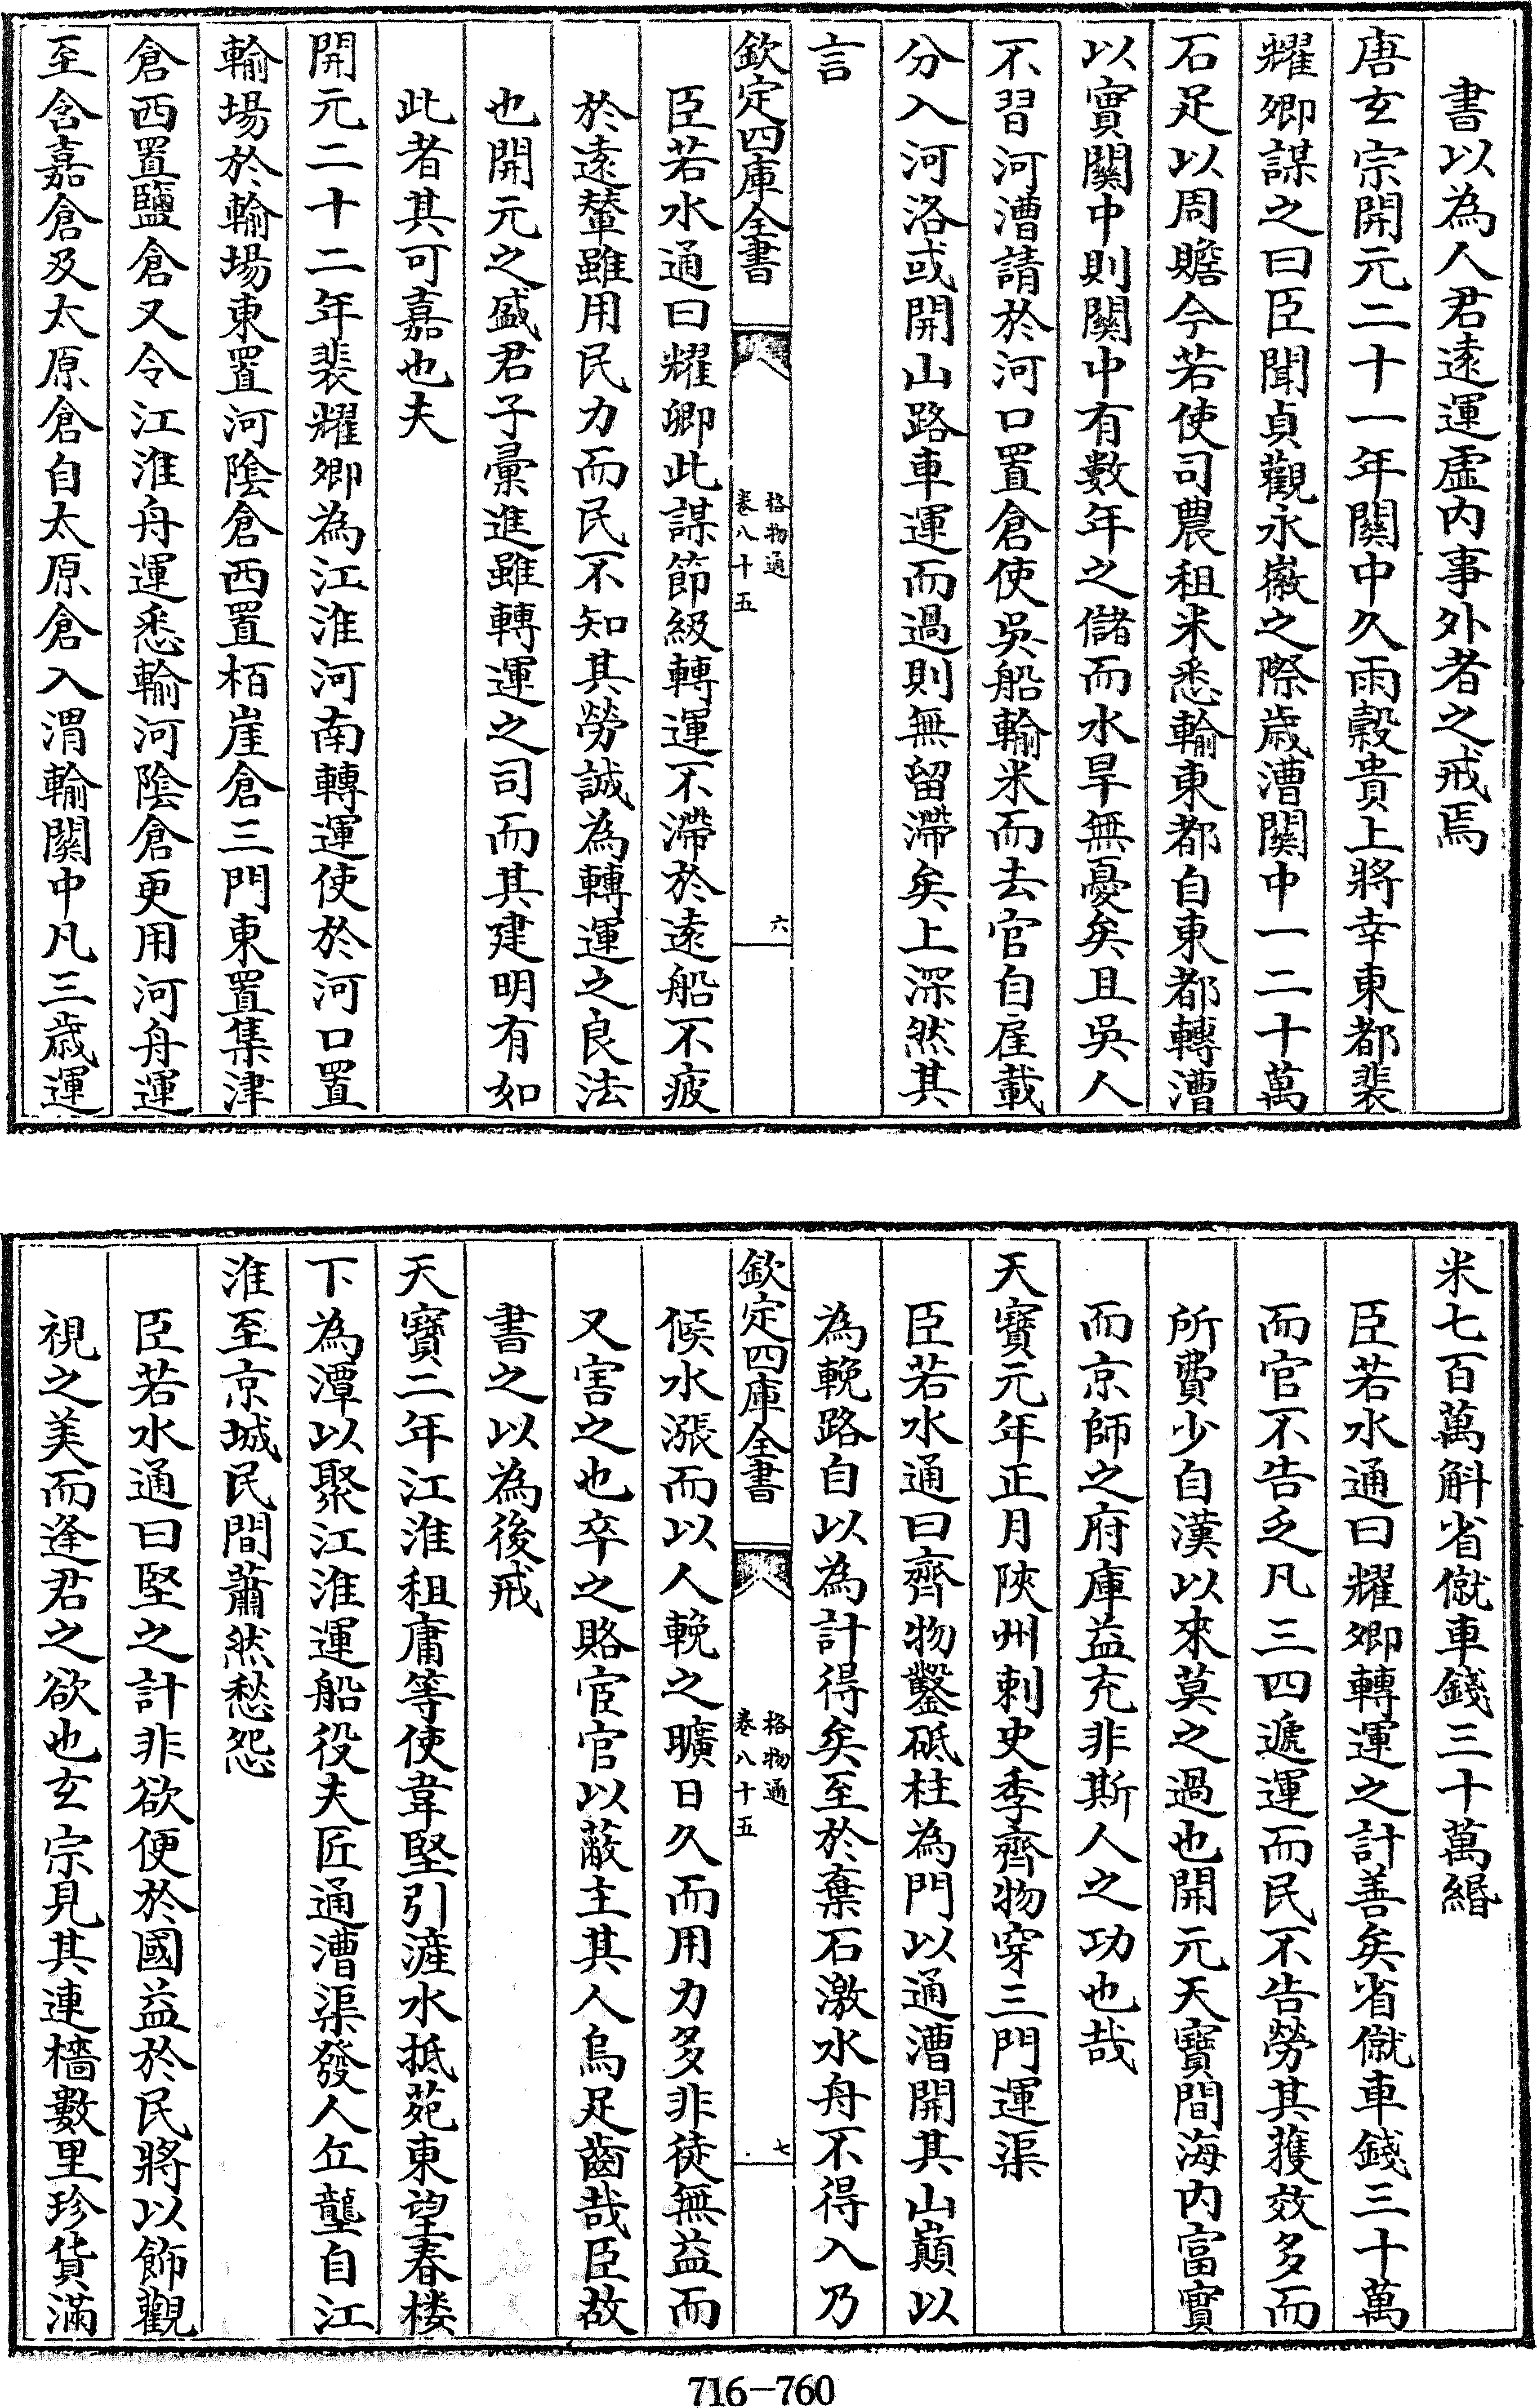 書以為人君遠運虛内事外者之戒焉
唐玄宗開元二十一年關中久雨穀貴上將幸東都裴
耀卿謀之曰臣聞貞觀永徽之際歳漕關中一二十萬
石足以周贍今若使司農租米悉輸東都自東都轉漕
以實關中則關中有數年之儲而水旱無憂矣且吳人
不習河漕請於河口置倉使吳船輸米而去官自雇載
分入河洛或開山路車運而過則無留滯矣上深然其
言
欽定四庫全書
格物通
卷八十五
六
臣若水通曰耀卿此謀節級轉運不滯於遠船不疲
於遠輦雖用民力而民不知其勞誠為轉運之良法
也開元之盛君子彚進雖轉運之司而其建明有如
此者其可嘉也夫
開元二十二年裴耀卿為江淮河南轉運使於河口置
輸場於輸場東置河陰倉西置栢崖倉三門東置集津
倉西置鹽倉又令江淮舟運悉輸河陰倉更用河舟運
至含嘉倉及太原倉自太原倉入渭輸關中凡三歳運
米七百萬斛省僦車錢三十萬緡
臣若水通曰耀卿轉運之計善矣省僦車錢三十萬
而官不告乏凡三四遞運而民不告勞其獲效多而
所費少自漢以來莫之過也開元天寶間海内富實
而京師之府庫益充非斯人之功也哉
天寶元年正月陜州刺史季齊物穿三門運渠
臣若水通曰齊物鑿砥柱為門以通漕開其山巔以
為輓路自以為計得矣至於棄石激水舟不得入乃
欽定四庫全書
格物通
卷八十五
七
候水漲而以人輓之曠日久而用力多非徒無益而
又害之也卒之賂宦官以蔽主其人烏足齒哉臣故
書之以為後戒
天寶二年江淮租庸等使韋堅引滻水抵苑東望春樓
下為潭以聚江淮運船役夫匠通漕渠發人丘壟自江
淮至京城民間蕭然愁怨
臣若水通曰堅之計非欲便於國益於民將以飾觀
視之美而逢君之欲也玄宗見其連檣數里珍貨滿
716-760